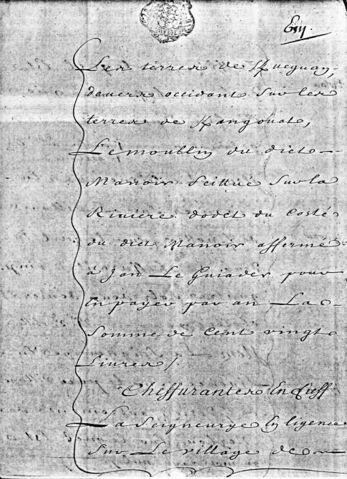 Les terres de
devers occidant sur les
terres de Kangouat,
Le moublin du dict
Manoir scittué sur la
Riviere dodet du costé
du dict Manoir affermé
à Jan Le Guiader pour
en payer par an La
Somme de Cent vingt
Livres /.
Cheffrantes En fieff
La Seigneurye ligence
sur Le village de